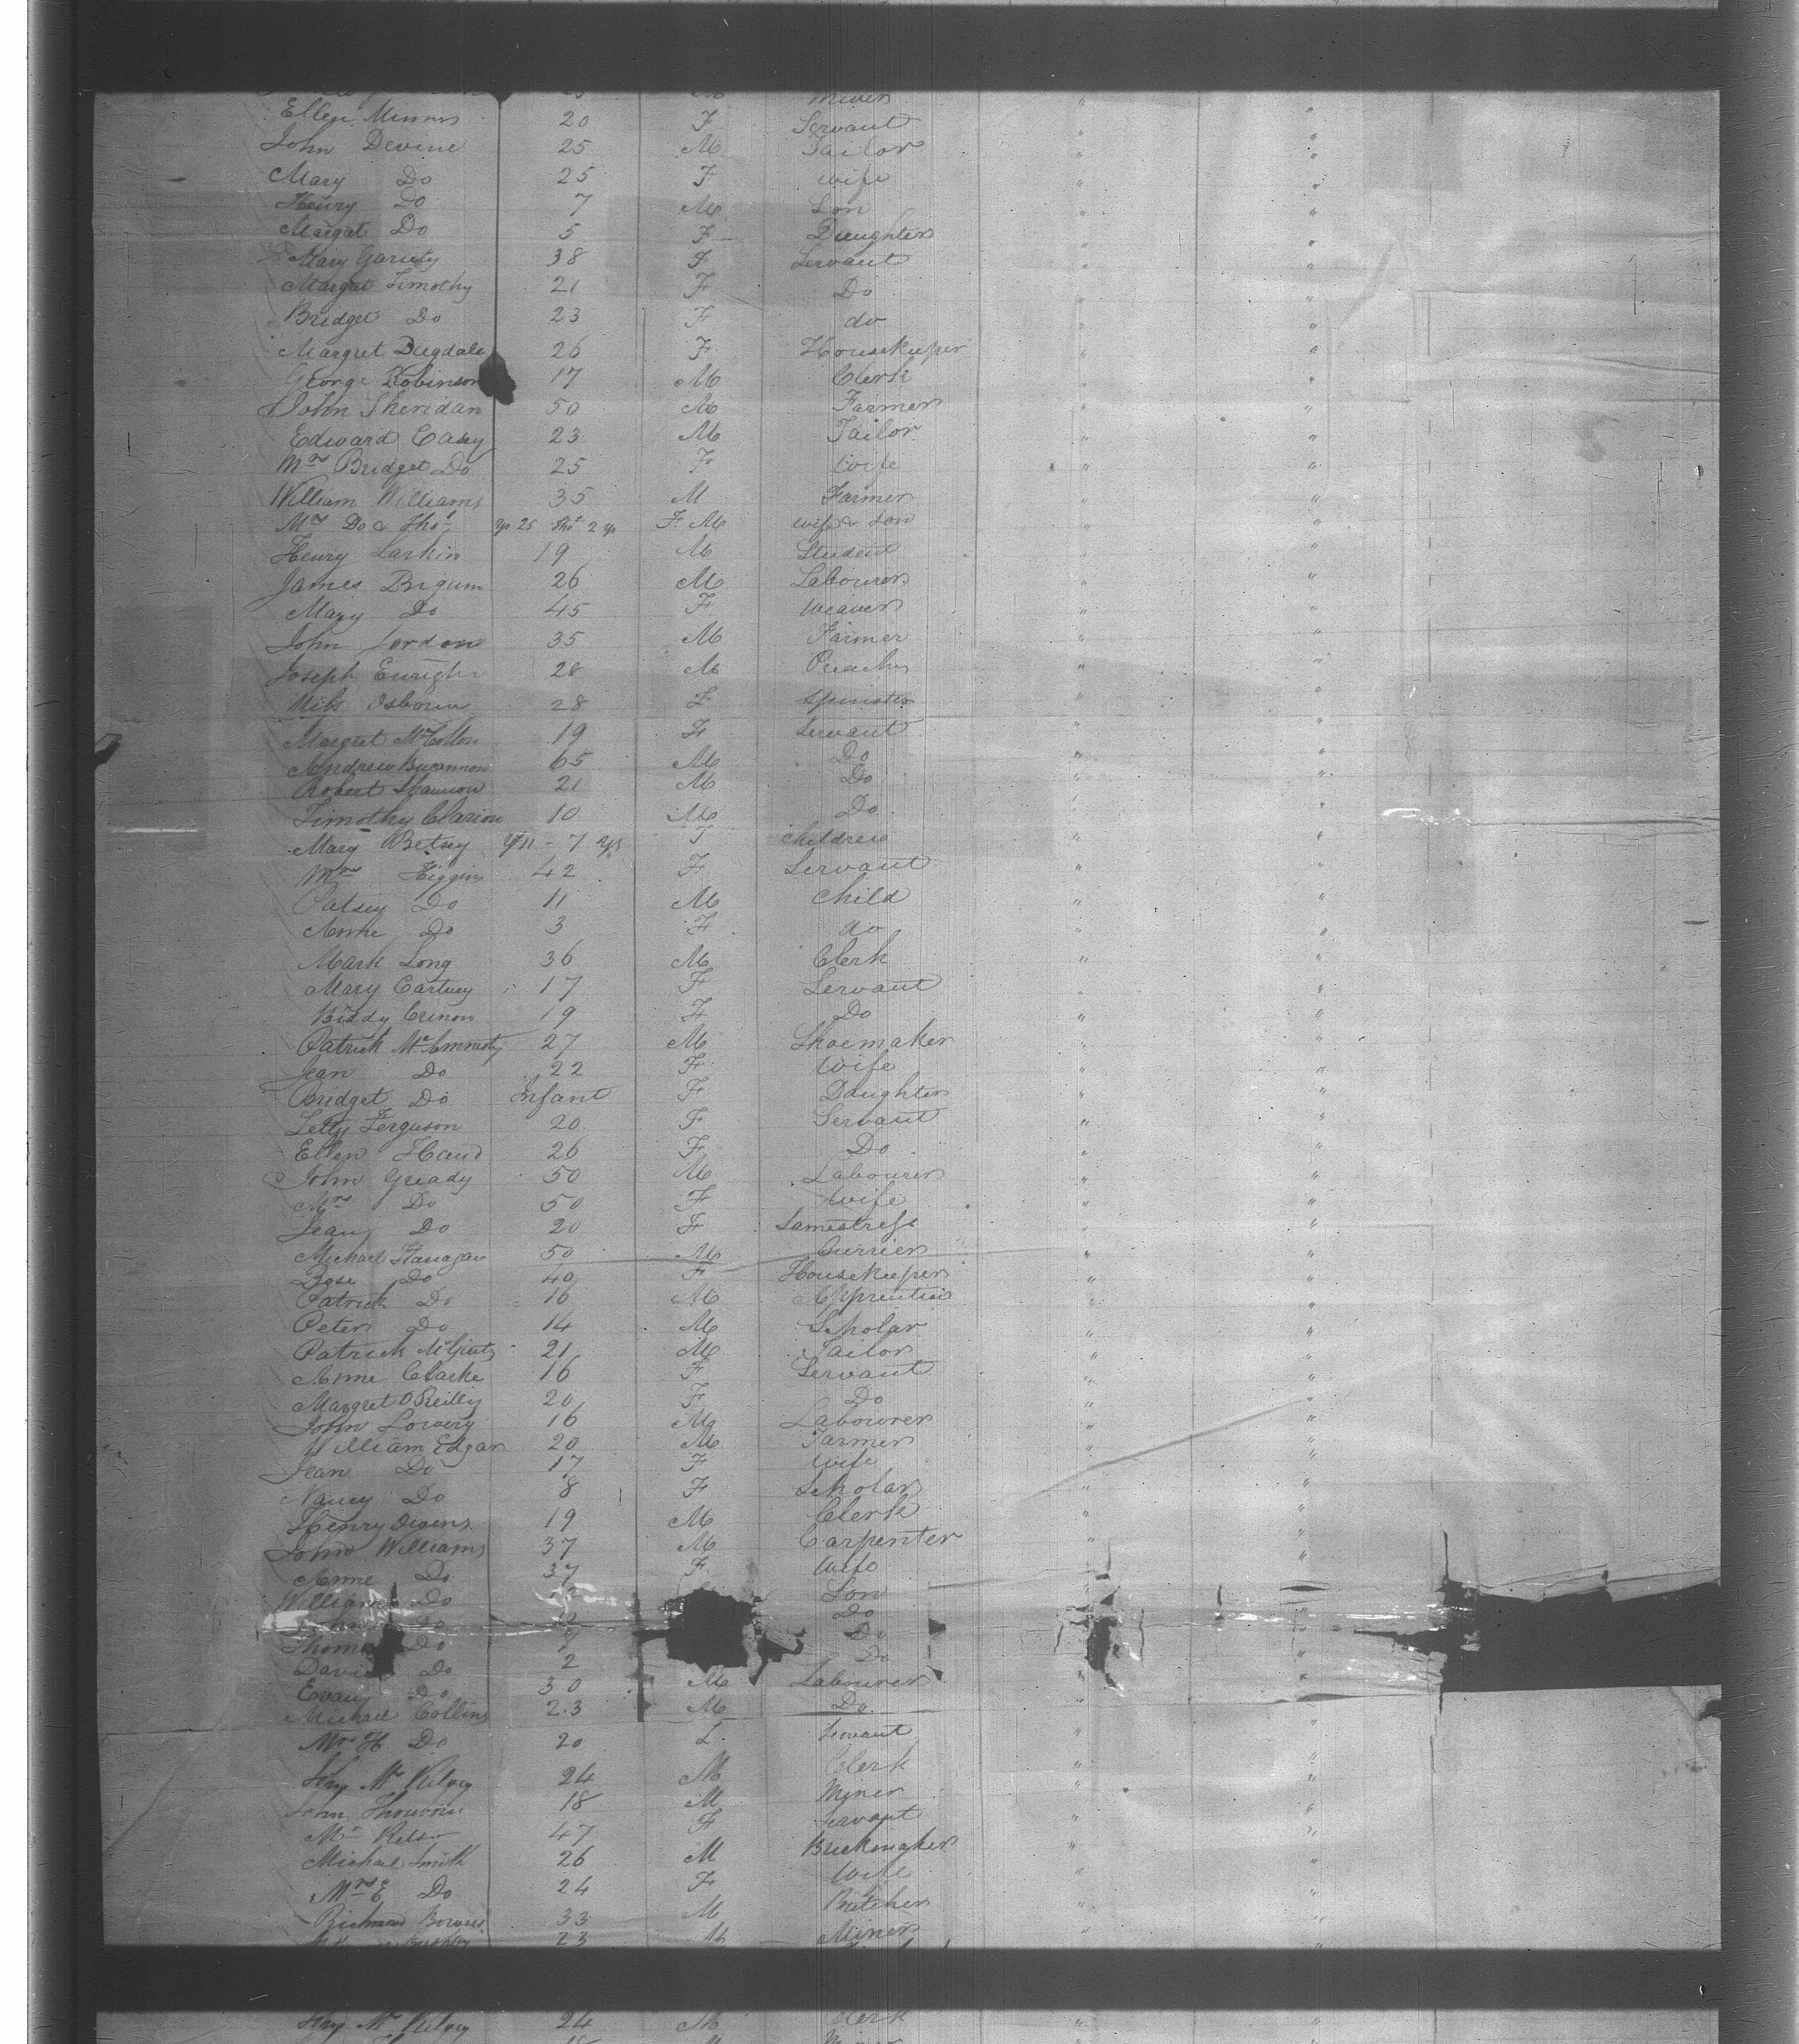 Miner " "
Ellen 20 F Servant " "
John Devine 25 M Tailor " "
Mary Do 25 F Wife " "
Henry Do 7 M Son " "
Margret Do 5 F Daughter " "
Mary Gariety 38 F Servant " "
Margret Timothy 21 F Do " "
Bridget Do 23 F do " "
Margret Dugdale 26 F Housekeeper " "
George Robinson 17 M Clerk " "
John Sheridan 50 M Farmer " "
Edward Casey 23 M Tailor " "
Mrs Bridget Do 25 F Wife " "
William Williams 35 M Farmer " "
Mrs Do & Thos 25 Thos 2 F M wife & Son " "
Henry Larkin 19 M Student " "
James 26 M Labourer " "
Mary Do 45 F Weaver " "
John Jordon 35 M Farmer " "
Joseph Enright 28 M Preacher " "
Miss Osbourn 28 F Spinster " "
Margret 19 F Servant " "
Andrew Bucannon 65 M Do " "
Robert Shannon 21 M Do " "
Timothy Clarion 10 M Do " "
Mary Betsey 11 - 7 yrs F Children " "
Mrs Higgins 42 F Servant " "
Patsey Do 11 M Child " "
Anne Do 3 F do " "
Mark Long 36 M Clerk " "
Mary Cartney 17 F Servant " "
Biddy Crinon 19 F Do " "
Patrick 27 M Shoemaker " "
Jean Do 22 F Wife " "
Bridget Do Infant F Daughter " "
Letty Ferguson 20 F Servant " "
Ellen Hand 26 F Do " "
John Gready 50 M Labourer " "
Mrs Do 50 F Wife " "
Jean Do 20 F Samestress " "
Michael Flanagan 50 M Currier " "
Rose Do 40 F Housekeeper " "
Patrick Do 16 M Apprentice " "
Peter Do 14 M Scholar " "
Patrick 21 M Tailor " "
Anne Clarke 16 F Servant " "
Margret O Reilly 20 F Do " "
John Lowery 16 M Labourer " "
William Edgar 20 M Farmer " "
Jean Do 17 F Wife " "
Nancy Do 8 F Scholar " "
Henry Owens 19 M Clerk " "
John Williams 37 M Carpenter " "
Anne Do 37 F Wife " "
William Do Son "
Do Do "
Thomas Do 7 Do "
David Do 2 Do "
Evan Do 30 M Labourer " "
Michael Collins 23 M Do " "
Mrs H Do 20 Servant " "
24 M Clerk " "
John 18 M Miner " "
Mrs 47 F Servant " "
Michael Smith 26 M Brickmaker " "
Mrs E Do 24 F Wife " "
Richmond 33 M Butcher " "
23 M Miner "
24 M Clerk " "